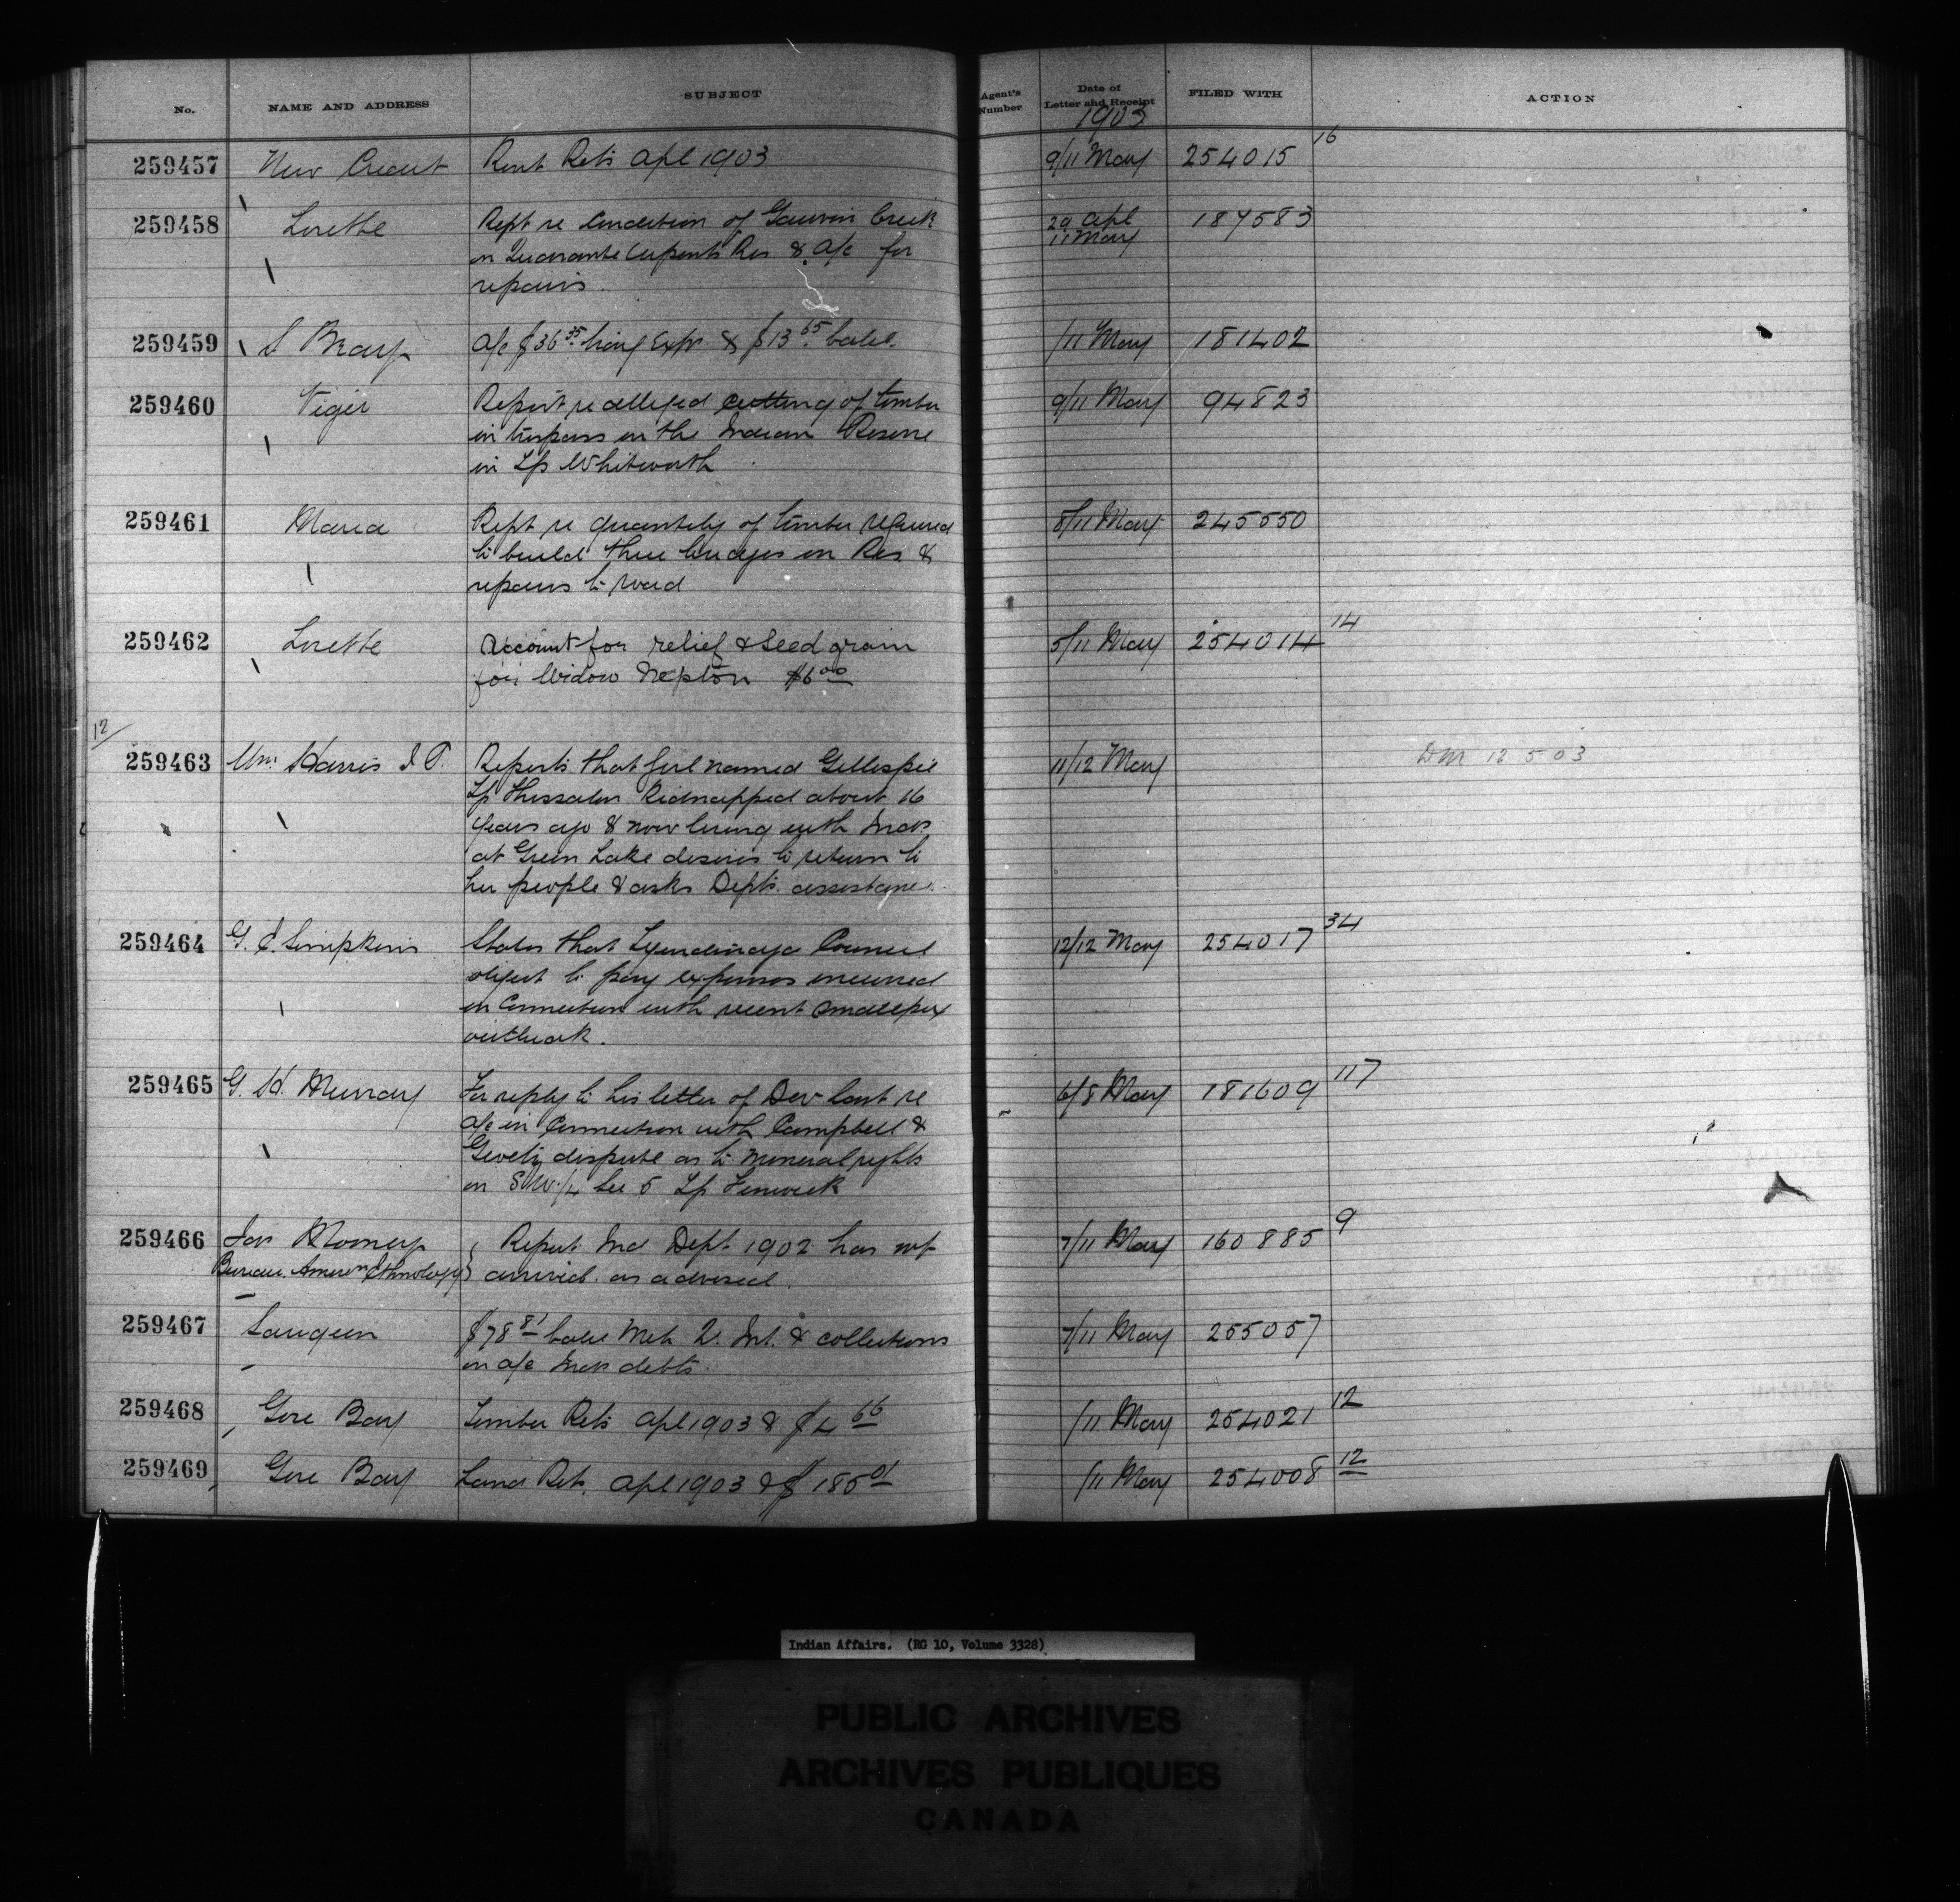 No. NAME AND ADDRESS SUBJECT Agent's Number Date of Letter and Receipt FILED WITH ACTION
1903
259457 New Credit Rent Rets Apl 1903 9/11 May 254015 16
259458 Lorette Rept re Condition of Gauvin Creek 29 Apl 187583
on Quarante Arpents Res & a/c for 11 May
repairs.
259459 S Bray a/c $36 35 livg Exps & $13 65 balce. /11 May 181402
259460 Viger Report re alleged cutting of timber 9/11 May 94823
in trespass on the Indian Reserve
in Tp Whitworth
259461 Maria Rept re quantity of timber required 8/11 May 245550
to build three bridges on Res &
repairs to road
259462 Lorette Account for relief & Seed grain 5/11 May 254014 14
for Widow Nepton $6 00
12/
259463 Wm Harris I P. Reports that girl named Gillespie 11/12 May DM 12 5 03
Tp Thessalon Kidnapped about 16
years ago & now living with Inds
at Green Lake desires to return to
her people & asks Depts. assistance.
259464 G. Simpkins States that Tyendinaga Council 12/12 May 254017 34
object to pay expenses incurred
in Connection with recent Smallpox
outbreak.
259465 G. H. Murray For reply to his letter of Dec last re 6/8 May 181609 117
a/c in Connection with Campbell &
dispute as to mineral rights
on SW 1/4 Sec 5 Tp Fenwick
259466 Jas Mooney Report Ind Dept 1902 has not 7/11 May 160885 9
Bureau. Amern Ethnology arrived. as advised.
259467 Saugeen $78 81 balce Int. & collections 7/11 May 255057
on a/c Inds debts.
259468 Gore Bay Timber Rets Apl 1903 & $4 66 /11 May 254021 12
259469 Gore Bay Land Rets. Apl 1903 & $185 01 /11 May 254008 12
Indian Affairs. (RG 10, Volume 3328)
PUBLIC ARCHIVES
ARCHIVES PUBLIQUES
CANADA